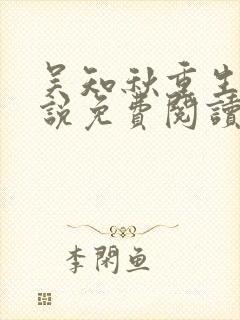 吴知秋重生
說免費閱讀
李閑魚